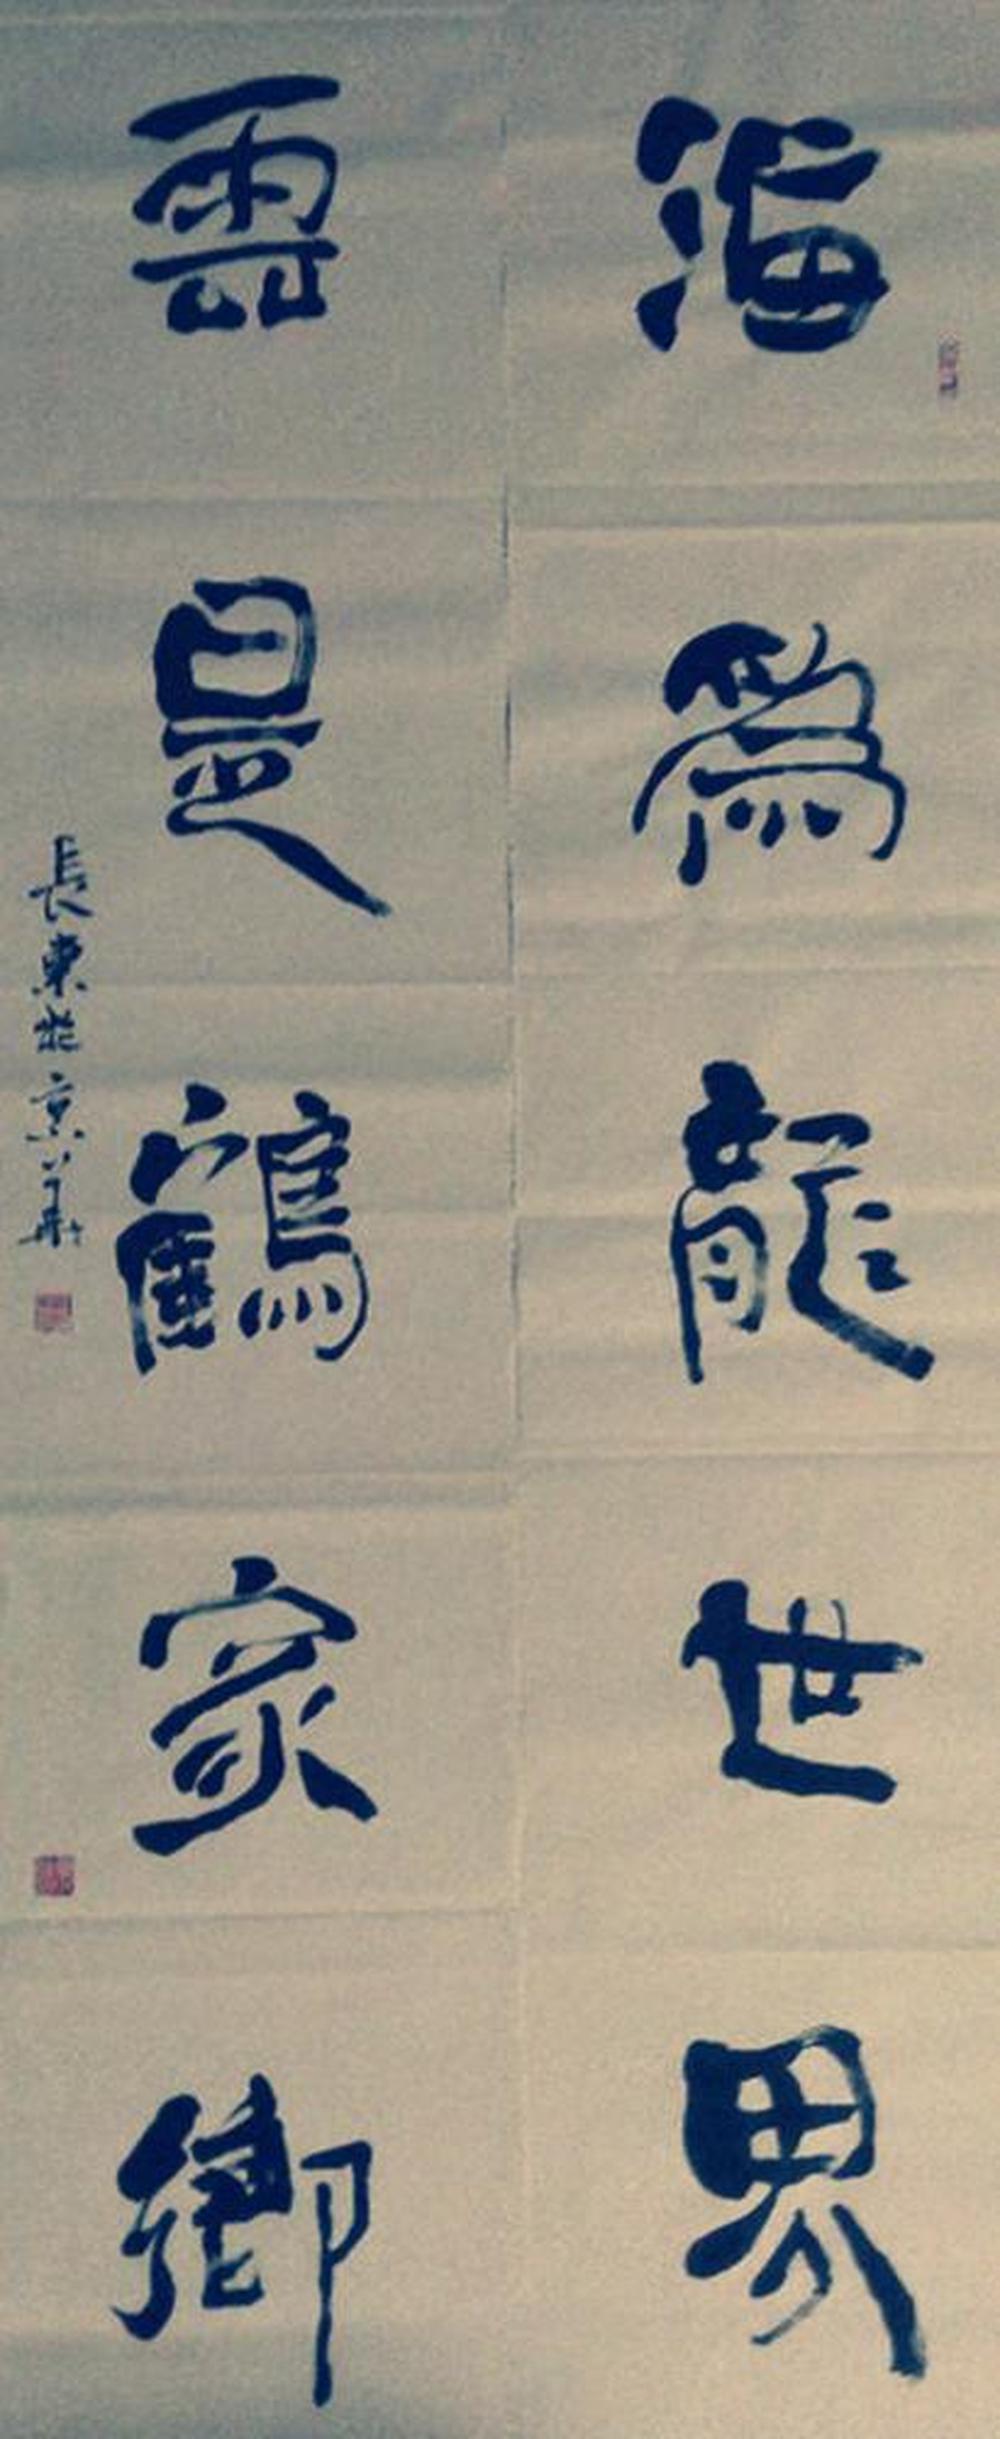 海為龍世界
雲是鶴家鄉
長東於京華